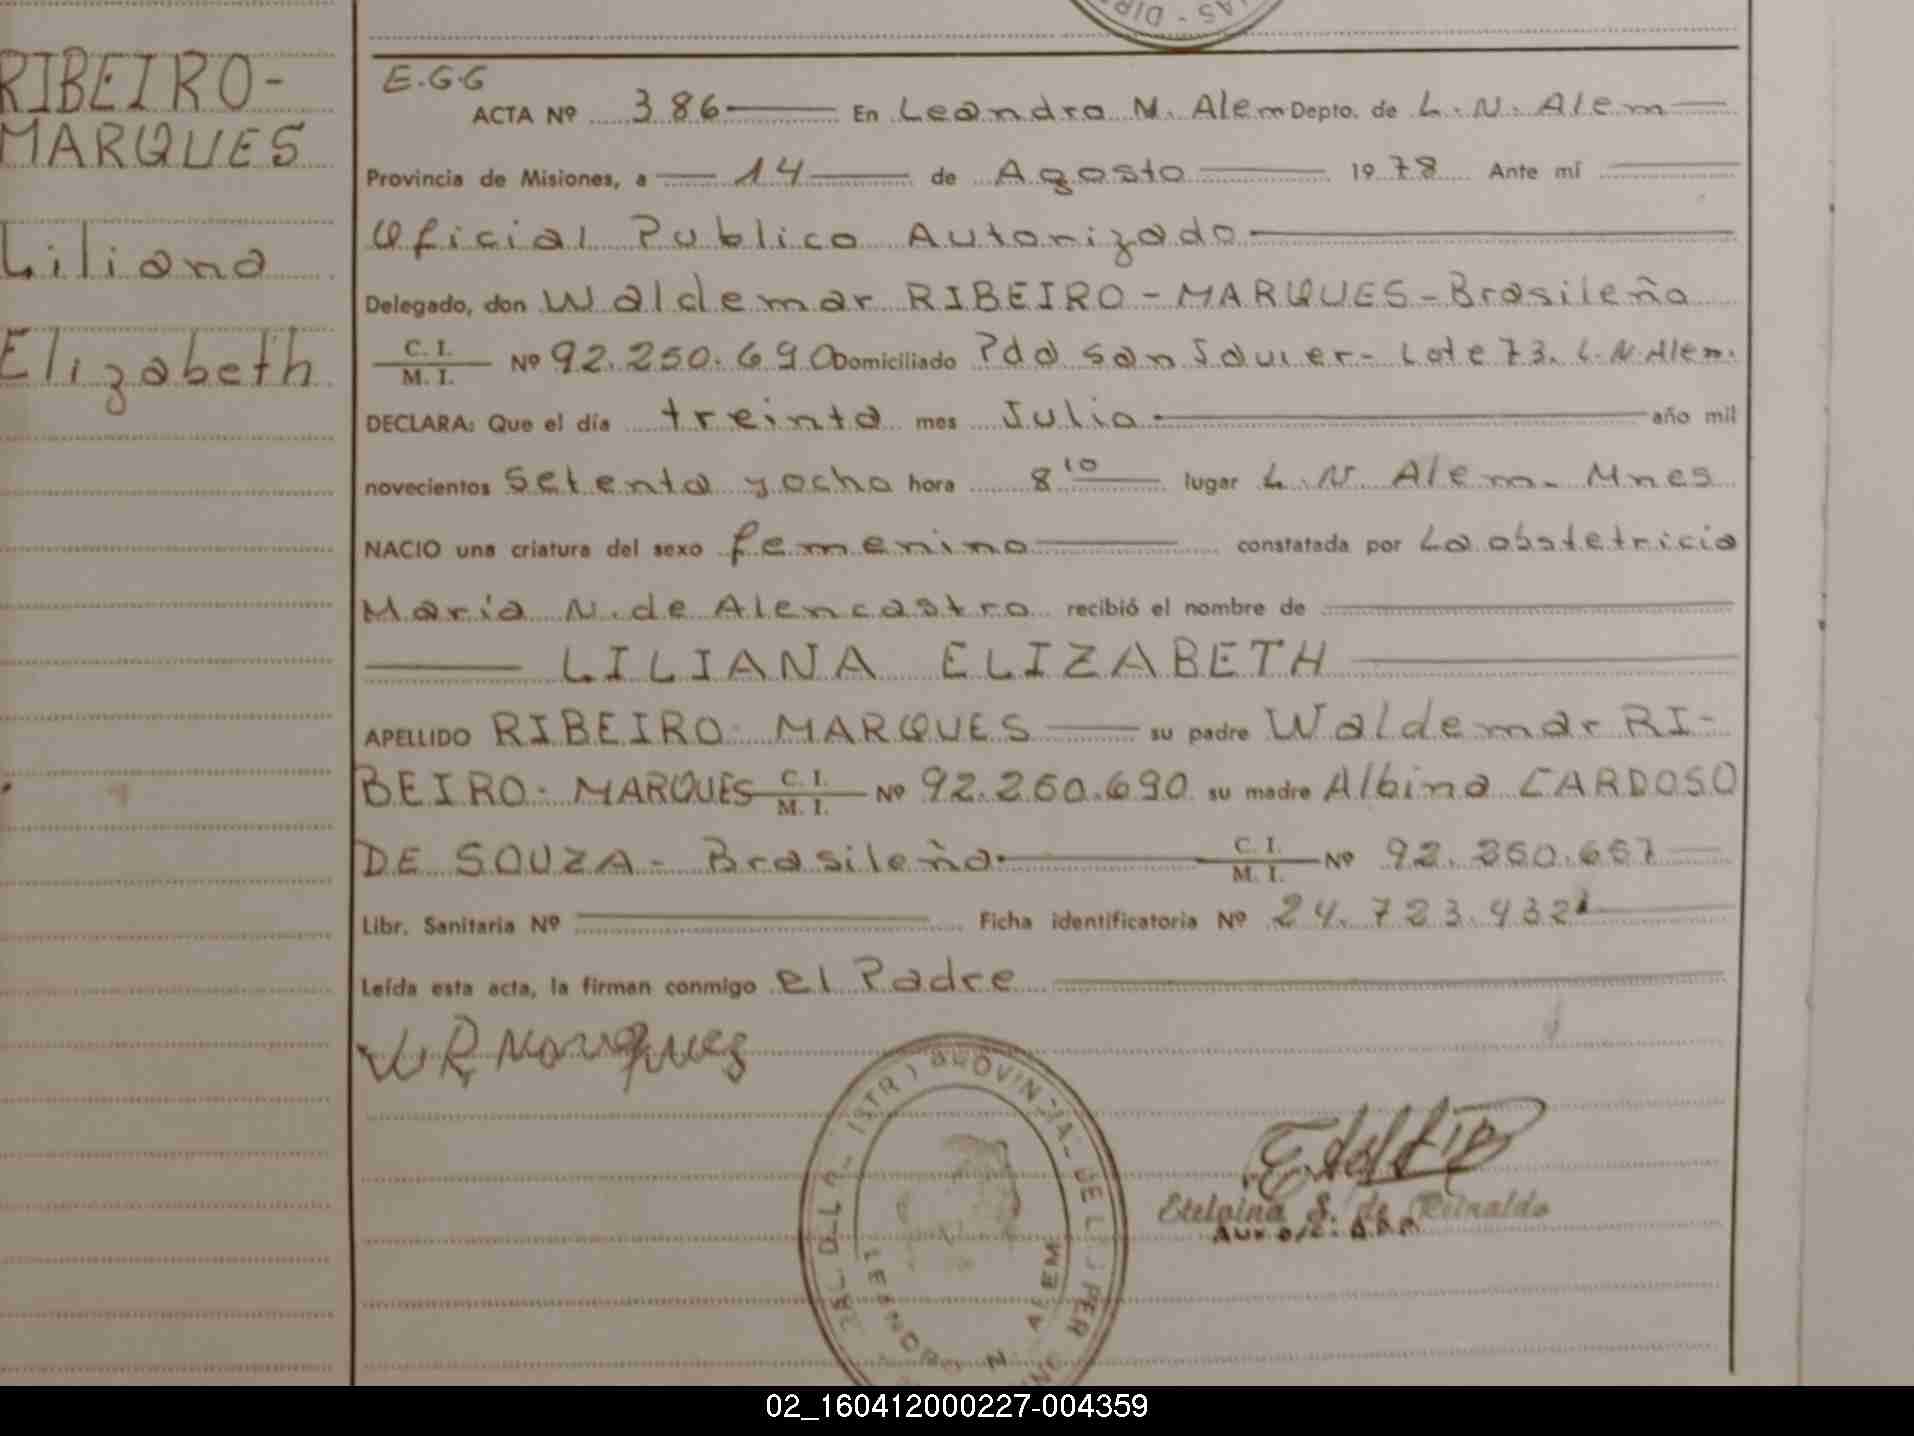 RIBEIRO-
MARQUES
Liliana
Elizabeth
E.G.G
ACTA Nº 386 En Leandro N. Alem Depto. de L. N. Alem
Provincia de Misiones, a 14 de Agosto 1978 Ante mí
Oficial Publico Autorizado
Delegado, don Waldemar RIBEIRO-MARQUES-Brasileño
C. I. / M. I. Nº 92.250.690 Domiciliado Pdo San Javier- Lote 73. L. N. Alem.
DECLARA: Que el día treinta mes Julio año mil
novecientos setenta y ocho hora 8 10 lugar L. N. Alem- Mnes
NACIO una criatura del sexo femenino constatada por La obstetricia
María N. de Alencastro recibió el nombre de
LILIANA ELIZABETH
APELLIDO RIBEIRO-MARQUES su padre Waldemar RI-
BEIRO-MARQUES C. I. / M. I. Nº 92.250.690 su madre Albina CARDOSO
DE SOUZA-Brasileña C. I. / M. I. Nº 92.250.657
Libr. Sanitaria Nº Ficha identificatoria Nº 24.723.432
Leída esta acta, la firman conmigo el Padre
W R Marques
PROVINCIA DE
N. ALEM
de Reinaldo
02_160412000227-004359